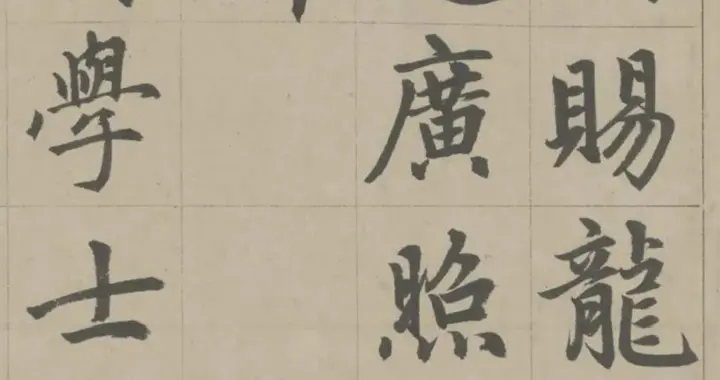 賜龍
廣照
學士